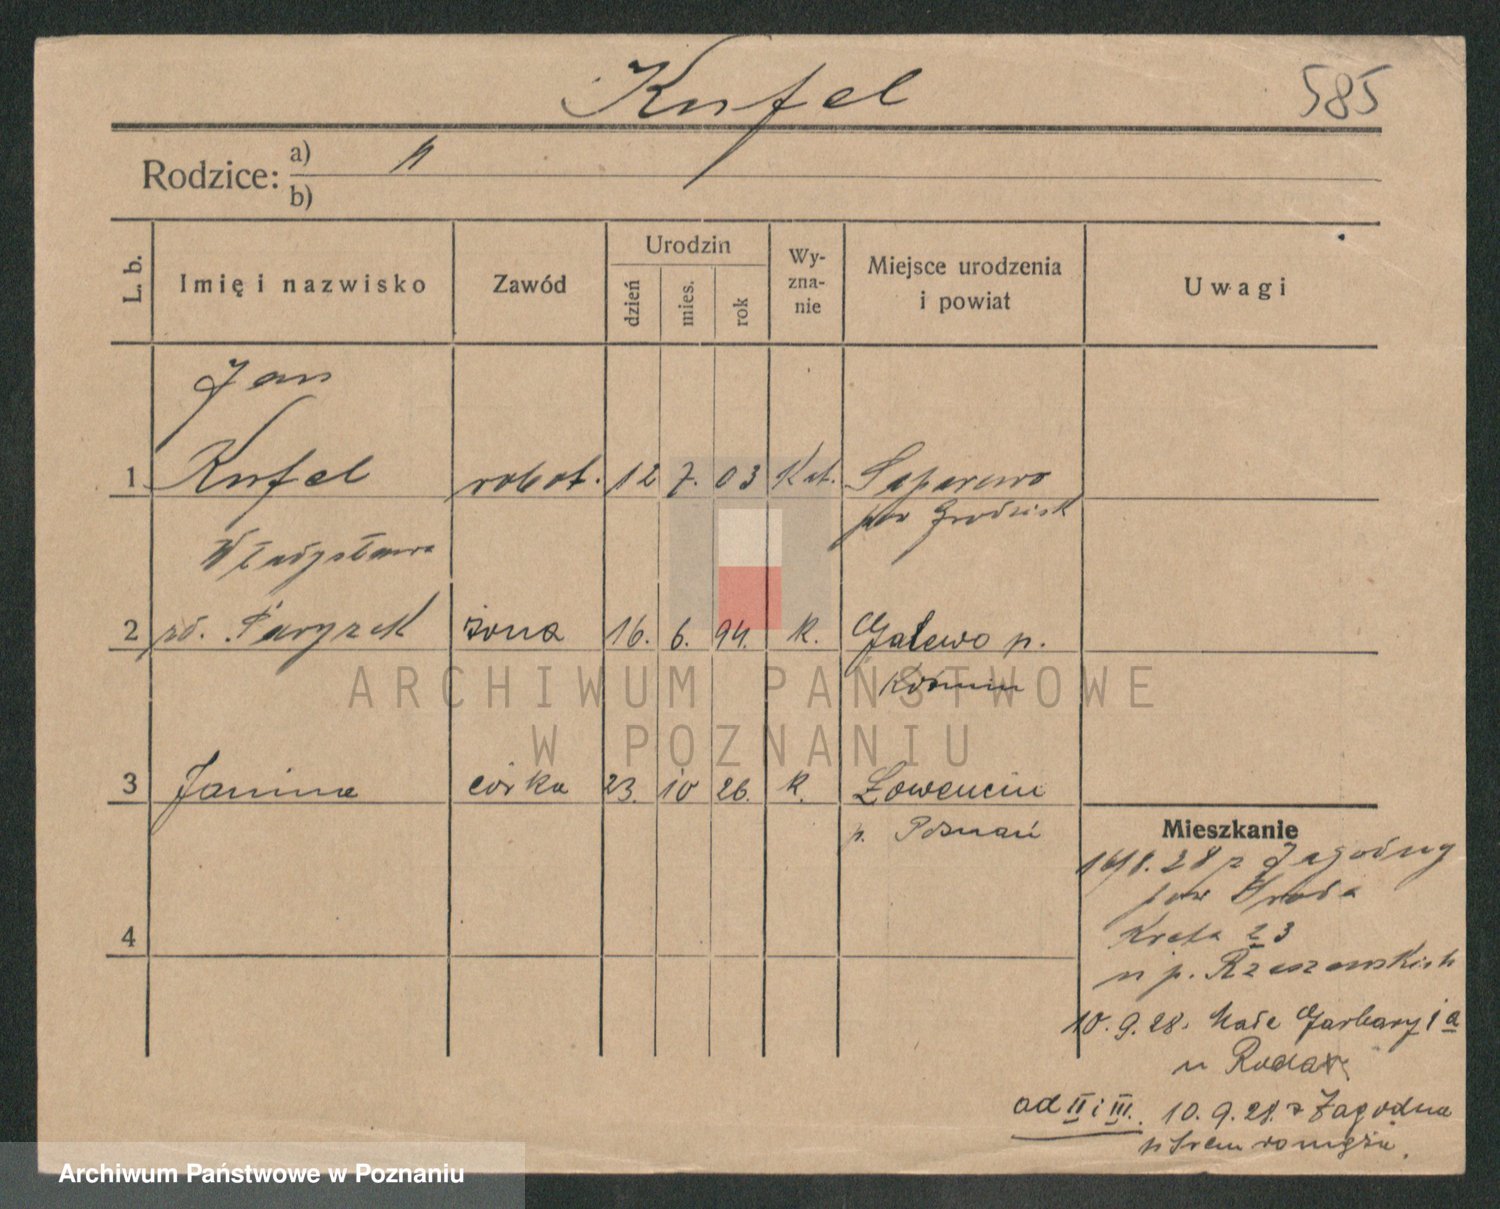 Kufel 585
Rodzice: a)
b)
L. b. Imię i nazwisko Zawód Urodzin dzień mies. rok Wy-zna-nie Miejsce urodzenia i powiat Uwagi
Jan
1 Kufel robot. 12 7. 03 Kat. Saparowo
pow Grodzisk
Władysława
2 zd. Paryzek żona 16. 6. 94. k. Galewo p.
Koźmin
3 Janina córka 23. 10 26. k. Łowęcin
p. Poznań
4
Mieszkanie
16/8.28 z Jagodny
pow Środa
Kręta 23
u p. Rzeszewskich
10.9.28. Małe Garbary 1a
u
ad II i III. 10.9.28. z Jagodna
Śrem
ARCHIWUM PAŃSTWOWE
W POZNANIU
Archiwum Państwowe w Poznaniu